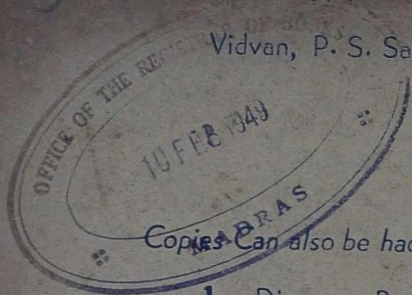 Vidvan, P. S. Sa
OFFICE OF THE REGISTRAR OF BOOKS
10 FEB 1949
MADRAS
Copies Can also be had